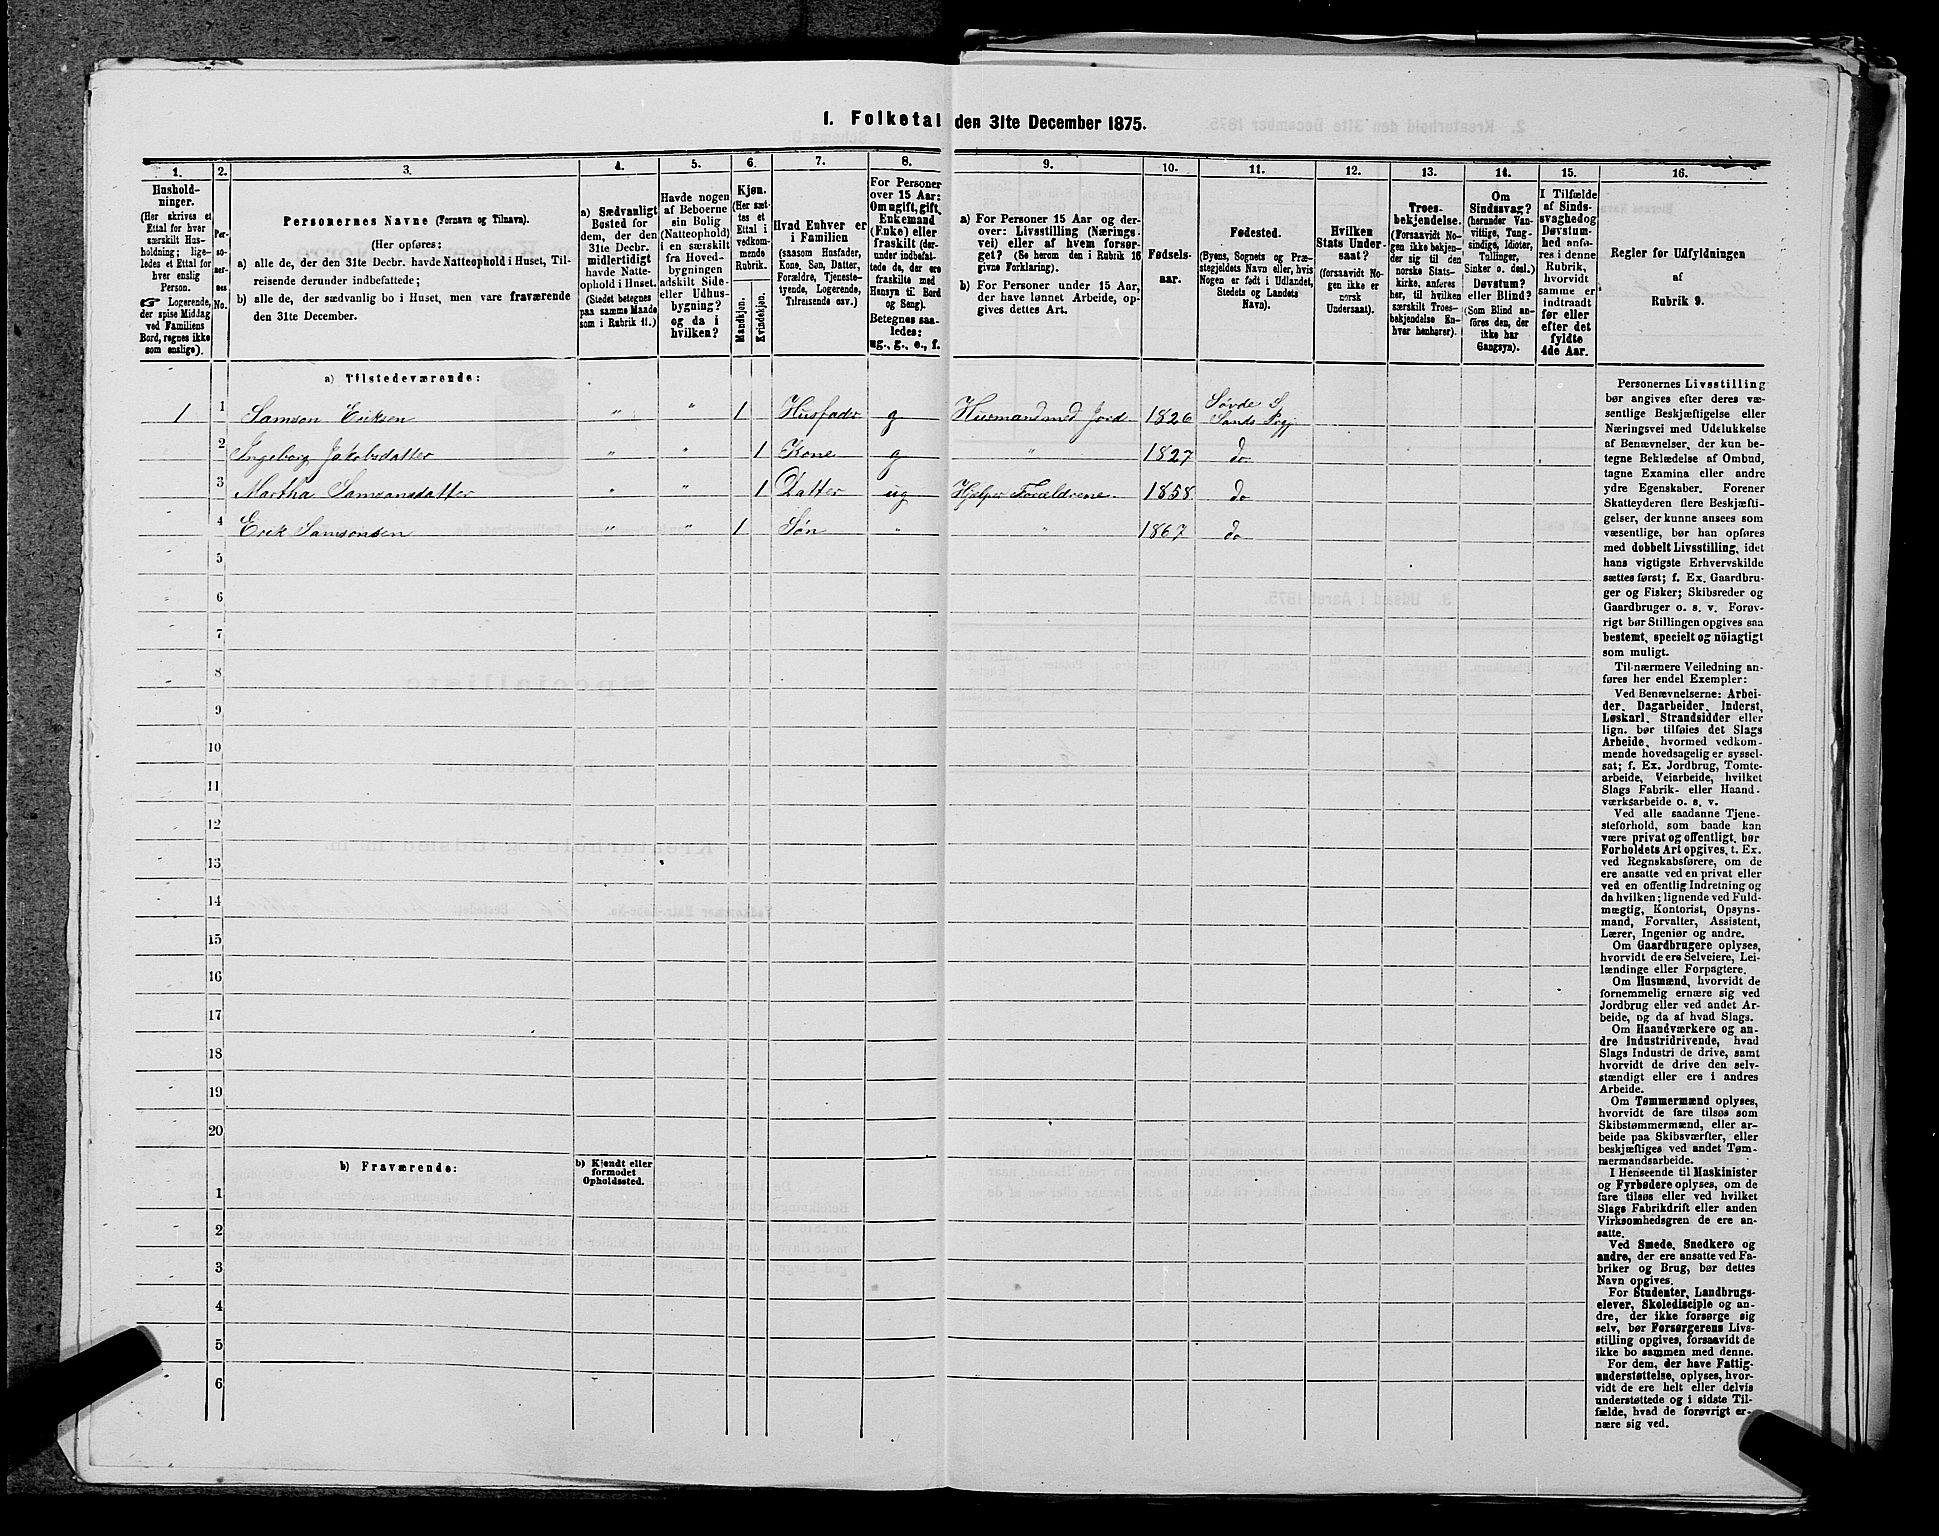 1. Folketal den 31te December 1875.
1.
2.
3.
4.
5.
6.
7.
8.
9.
10.
11.
12.
13.
14.
15.
16.
Hushold-
ninger.
(Her skrives et
Ettal for hver
særskilt Hus-
holdning; lige-
ledes et Ettal for
hver enslig
Person.
☞ Logerende,
der spise Middag
ved Familiens
Bord, regnes ikke
som enslige).
Per-
so-
ner-
nes
No.
Personernes Navne (Fornavn og Tilnavn).
(Her opføres:
a) alle de, der den 31te Decbr. havde Natteophold i Huset, Til-
reisende derunder indbefattede;
b) alle de, der sædvanlig bo i Huset, men vare fraværende
den 31te December.
a) Sædvanligt
Bosted for
dem, der den
31te Decbr.
midlertidigt
havde Natte-
ophold i Huset.
(Stedet betegnes
paa samme Maade
som i Rubrik 11.)
Havde nogen
af Beboerne
sin Bolig
(Natteophold)
i en særskilt
fra Hoved-
bygningen
adskilt Side-
eller Udhus-
bygning?
og da i
hvilken?
Kjøn.
(Her sæt-
tes et
Ettal i
vedkom-
mende
Rubrik.
Mandkjøn.
Kvindekjøn.
Hvad Enhver er
i Familien
(saasom Husfader,
Kone, Søn, Datter,
Forældre, Tjeneste-
tyende, Logerende,
Tilreisende osv.)
For Personer
over 15 Aar:
Om ugift, gift,
Enkemand
(Enke) eller
fraskilt (der-
under indbefat-
tede de, der ere
fraskilte med
Hensyn til Bord
og Seng).
Betegnes saa-
ledes:
ug., g., e., f.
a) For Personer 15 Aar og der-
over: Livsstilling (Nærings-
vei) eller af hvem forsør-
get? (Se herom den i Rubrik 16
givne Forklaring).
b) For Personer under 15 Aar,
der have lønnet Arbeide, op-
gives dettes Art.
Fødsels-
aar.
Fødested.
(Byens, Sognets og Præ-
stegjeldets Navn eller, hvis
Nogen er født i Udlandet,
Stedets og Landets
Navn).
Hvilken
Stats Under-
saat?
(forsaavidt No-
gen ikke er
norsk
Undersaat).
Troes-
bekjendelse.
(Forsaavidt No-
gen ikke bekjen-
der sig til den
norske Stats-
kirke, anføres
her, til hvilken
særskilt Troes-
bekjendelse En-
hver henhører).
Om
Sindssvag?
(herunder Van-
vittige, Tung-
sindige, Idioter,
Tullinger,
Sinker o. desl.)
Døvstum?
eller Blind?
(Som Blind an-
føres den, der
ikke har
Gangsyn).
I Tilfælde
af Sinds-
svaghed og
Døvstum-
hed anfø-
res i denne
Rubrik,
hvorvidt
samme er
indtraadt
før eller
efter det
fyldte
4de Aar.
Regler for Udfyldningen
af
Rubrik 9.
a) Tilstedeværende:
1 1 Samson Eriksen " " 1 Husfader g Husmand med Jord 1826 Søvde S. Sands Prgj
2 Ingeborg Jakobsdatter " " 1 Kone g " 1827 do
3 Martha Samsonsdatter " " 1 Datter ug Hjælper Forældrene 1858 do
4 Erik Samsonsen " " 1 Søn " " 1867 do
5
6
7
8
9
10
11
12
13
14
15
16
17
18
19
20
b) Fraværende:
b) Kjendt eller
formodet
Opholdssted.
1
2
3
4
5
6
Personernes Livsstilling
bør angives efter deres væ-
sentlige Beskjæftigelse eller
Næringsvei med Udelukkelse
af Benævnelser, der kun be-
tegne Beklædelse af Ombud,
tagne Examina eller andre
ydre Egenskaber. Forener
Skatteyderen flere Beskjæfti-
gelser, der kunne ansees som
væsentlige, bør han opføres
med dobbelt Livsstilling, idet
hans vigtigste Erhvervskilde
sættes først; f. Ex. Gaardbru-
ger og Fisker; Skibsreder og
Gaardbruger o. s. v. Forøv-
rigt bør Stillingen opgives saa
bestemt, specielt og nöiagtigt
som muligt.
Til nærmere Veiledning an-
føres her endel Exempler:
Ved Benævnelserne: Arbei-
der, Dagarbeider, Inderst,
Løskarl, Strandsidder eller
lign. bør tilføies det Slags
Arbeide, hvormed vedkom-
mende hovedsagelig er syssel-
sat; f. Ex. Jordbrug, Tomte-
arbeide, Veiarbeide, hvilket
Slags Fabrik- eller Haand-
værksarbeide o. s. v.
Ved alle saadanne Tjene-
steforhold, som baade kan
være privat og offentligt, bør
Forholdets Art opgives, t. Ex.
ved Regnskabsførere, om de
ere ansatte ved en privat eller
ved en offentlig Indretning og
da hvilken; lignende ved Fuld-
mægtig, Kontorist, Opsyns-
mand, Forvalter, Assistent,
Lærer, Ingeniør og andre.
Om Gaardbrugere oplyses,
hvorvidt de ere Selveiere, Lei-
lændinge eller Forpagtere.
Om Husmænd, hvorvidt de
fornemmelig ernære sig ved
Jordbrug eller ved andet Ar-
beide, og da af hvad Slags.
Om Haandværkere og an-
dre Industridrivende, hvad
Slags Industri de drive, samt
hvorvidt de drive den selv-
stændigt eller ere i andres
Arbeide.
Om Tømmermænd oplyses,
hvorvidt de fare tilsøs som
Skibstømmermænd, eller ar-
beide paa Skibsværfter, eller
beskjæftiges ved andet Tøm-
mermandsarbeide.
I Henseende til Maskinister
og Fyrbødere oplyses, om de
fare tilsøs eller ved hvilket
Slags Fabrikdrift eller anden
Virksomhedsgren de ere an-
satte.
Ved Smede, Snedkere og
andre, der ere ansatte ved Fa-
briker og Brug, bør dettes
Navn opgives.
For Studenter, Landbrugs-
elever, Skoledisciple og an-
dre, der ikke forsørge sig
selv, bør Forsørgerens Livs-
stilling opgives, forsaavidt de
ikke bo sammen med denne.
For dem, der have Fattig-
understøttelse, oplyses, hvor-
vidt de ere helt eller delvis
understøttede og i sidste Til-
fælde, hvad de forøvrigt er-
nære sig ved.